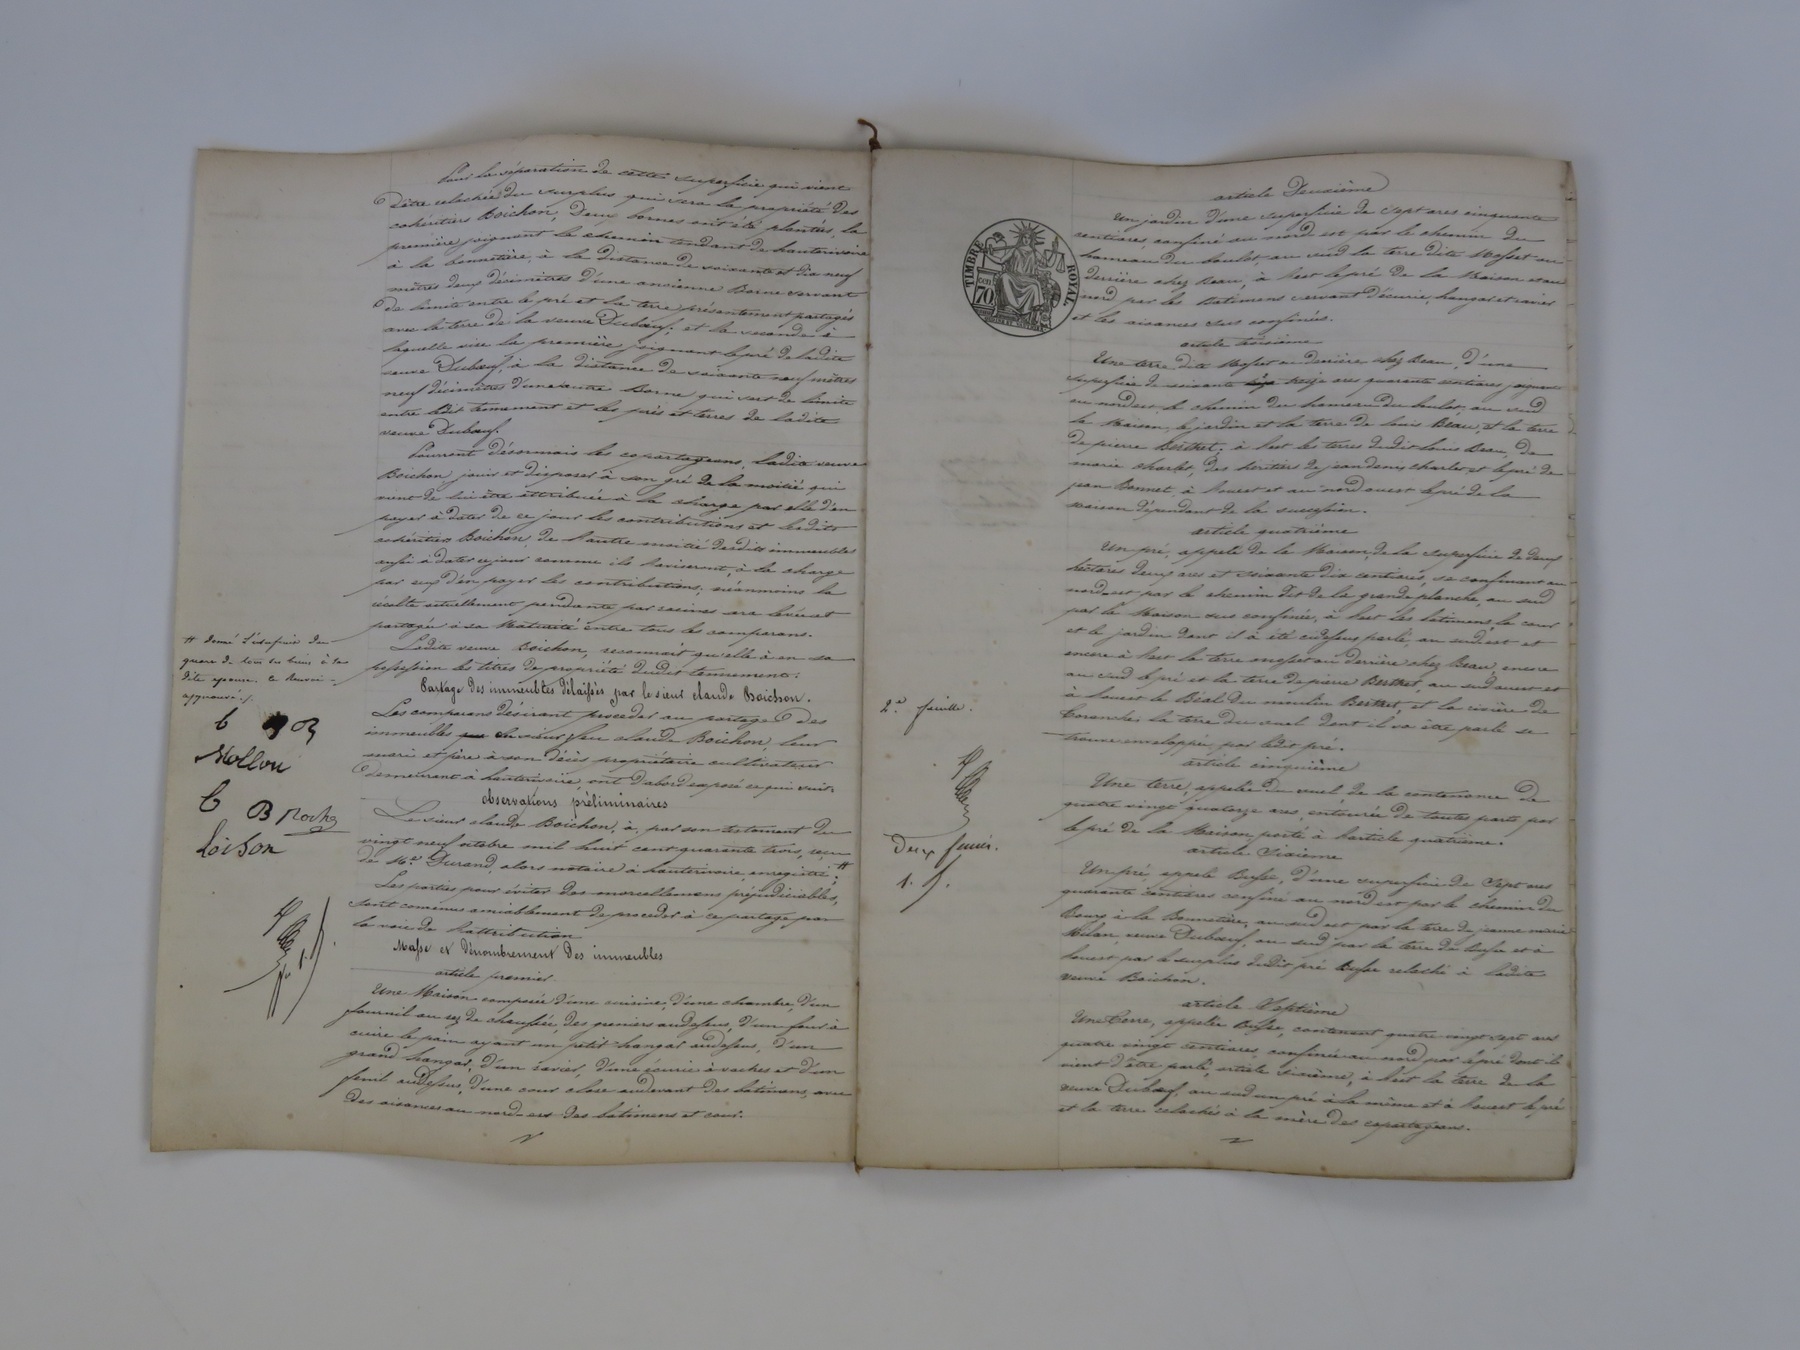 Pour la séparation de cette superficie qui vient
d'être relachée du surplus qui sera la propriété des
cohéritiers Boichon, deux bornes ont été plantées, la
première joignant le chemin tendant de hauterivoire
à la bonnetière, à la distance de soixante et dix neuf
mètres deux décimètres d'une ancienne Borne servant
de limite entre le pré et la terre présentement partagés
avec la terre de la veuve Dubœuf; et la seconde à
laquelle vise la première joignant le pré de ladite
veuve Dubœuf, à la distance de soixante neuf mètres
neuf décimètres d'une autre Borne qui sert de limite
entre ledit tennement et les prés et terres de ladite
veuve Dubœuf.
Pourront désormais les copartageans, ladite veuve
Boichon jouir et disposer à son gré de la moitié qui
vient de lui être attribuée à la charge par elle d'en
payer à dater de ce jour les contributions et lesdits
cohéritiers Boichon de l'autre moitié desdits immeubles
aussi à dater ce jour comme ils l'aviseront, à la charge
par eux d'en payer les contributions; néanmoins la
récolte actuellement pendante par racines sera levée et
partagée à sa Maturité entre tous les comparans.
Ladite veuve Boichon, reconnait qu'elle à en sa
possession les titres de propriété dudit tennement.
Partage des immeubles délaissés par le sieur claude Boichon.
Les comparans désirant procéder au partage des
immeubles du sieur feu claude Boichon, leur
mari et père à son décès propriétaire cultivateur
demeurant à hauterivoire, ont d'abord exposé ce qui suit.
observations préliminaires
Le sieur claude Boichon, à, par son testament du
vingt neuf octobre mil huit cent quarante trois, reçu
de Me. Durand, alors notaire à hauterivoire, enregistré; #
Les parties pour éviter des morcellemens préjudiciables,
sont convenues amiablement de procéder à ce partage par
la voie de l'attribution
Masse et dénombrement des immeubles
article premier.
Une Maison composée d'une cuisine, d'une chambre, d'un
fournil au rez de chaussée, des greniers audessus, d'un four à
cuire le pain ayant un petit hangar audessus, d'un
grand hangar, d'un cavier, d'une écurie à vaches et d'un
fenil audessus, d'une cour close audevant des batimens, avec
des aisances au nord-est des batimens et cour.
# donné l'usufruit du
quart de tous ses biens à sa
dite épouse. le Renvoi
approuvé ./.
C B
Mollon
C B Rocha
Loison
article Deuxième
Un jardin d'une superficie de sept ares cinquante
centiares, confiné au nord est par le chemin du
hameau du boulot, au sud la terre dite Masset ou
derrière chez Beau, à l'est le pré de la Maison et au
nord par les batimens servant d'écurie, hangar et cavier
et les aisances sus confinées.
article troisième
Une terre dite Masset ou derrière chez Beau, d'une
superficie de soixante treize ares quarante centiares joignant
au nord est le chemin du hameau du boulot, au sud
la Maison, le jardin et la terre de louis Beau, et la terre
de pierre Berthet; à l'est les terres dudit louis Beau, de
marie charlet, des héritiers de jean denis charlet et le pré de
jean Bonnet, à l'ouest et au nord ouest le pré de la
maison dépendant de la succession.
article quatrième
Un pré, appelé de la Maison, de la superficie de deux
hectares deux ares et soixante dix centiares, se confinant au
nord est par le chemin dit de la grande planche, au sud
par la Maison sus confinée, à l'est les bâtimens, la cour
et le jardin dont il à été cidessus parlé, au sud est et
encore à l'est la terre masset ou derrière chez Beau, encore
au sud le pré et la terre de pierre Berthet, au sud ouest et
à l'ouest le Béal du moulin Berthet, et la rivière de
Coranche; la terre du cruel dont il va être parlé se
trouve enveloppée par ledit pré.
article cinquième
Une terre, appelée du cruel de la contenance de
quatre vingt quatorze ares, entourée de toutes parts par
le pré de la Maison porté à l'article quatrième.
article Sixième
Un pré, appelé Busse, d'une superficie de Sept ares
quarante centiares confiné au nord est par le chemin du
Bourg à la Bonnetière, au sud est par la terre de jeanne marie
Milan, veuve Dubœuf, au sud par la terre de Busse et à
l'ouest par le surplus dudit pré Busse relaché à ladite
veuve Boichon.
article Septième
Une Terre, appelée Busse, contenant quatre vingt sept ares
quatre vingt centiares, confinée au nord par le pré dont il
vient d'être parlé, article sixième, à l'est la terre de la
veuve Dubœuf, au sud un pré à la même et à l'ouest le pré
et la terre relachés à la mère des copartageans.
TIMBRE ROYAL
CEN
70
2e. feuille.
Deux